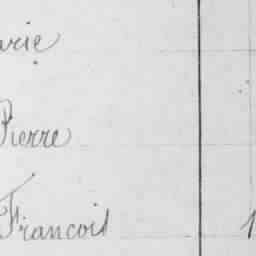 arie
Pierre
Francois 1